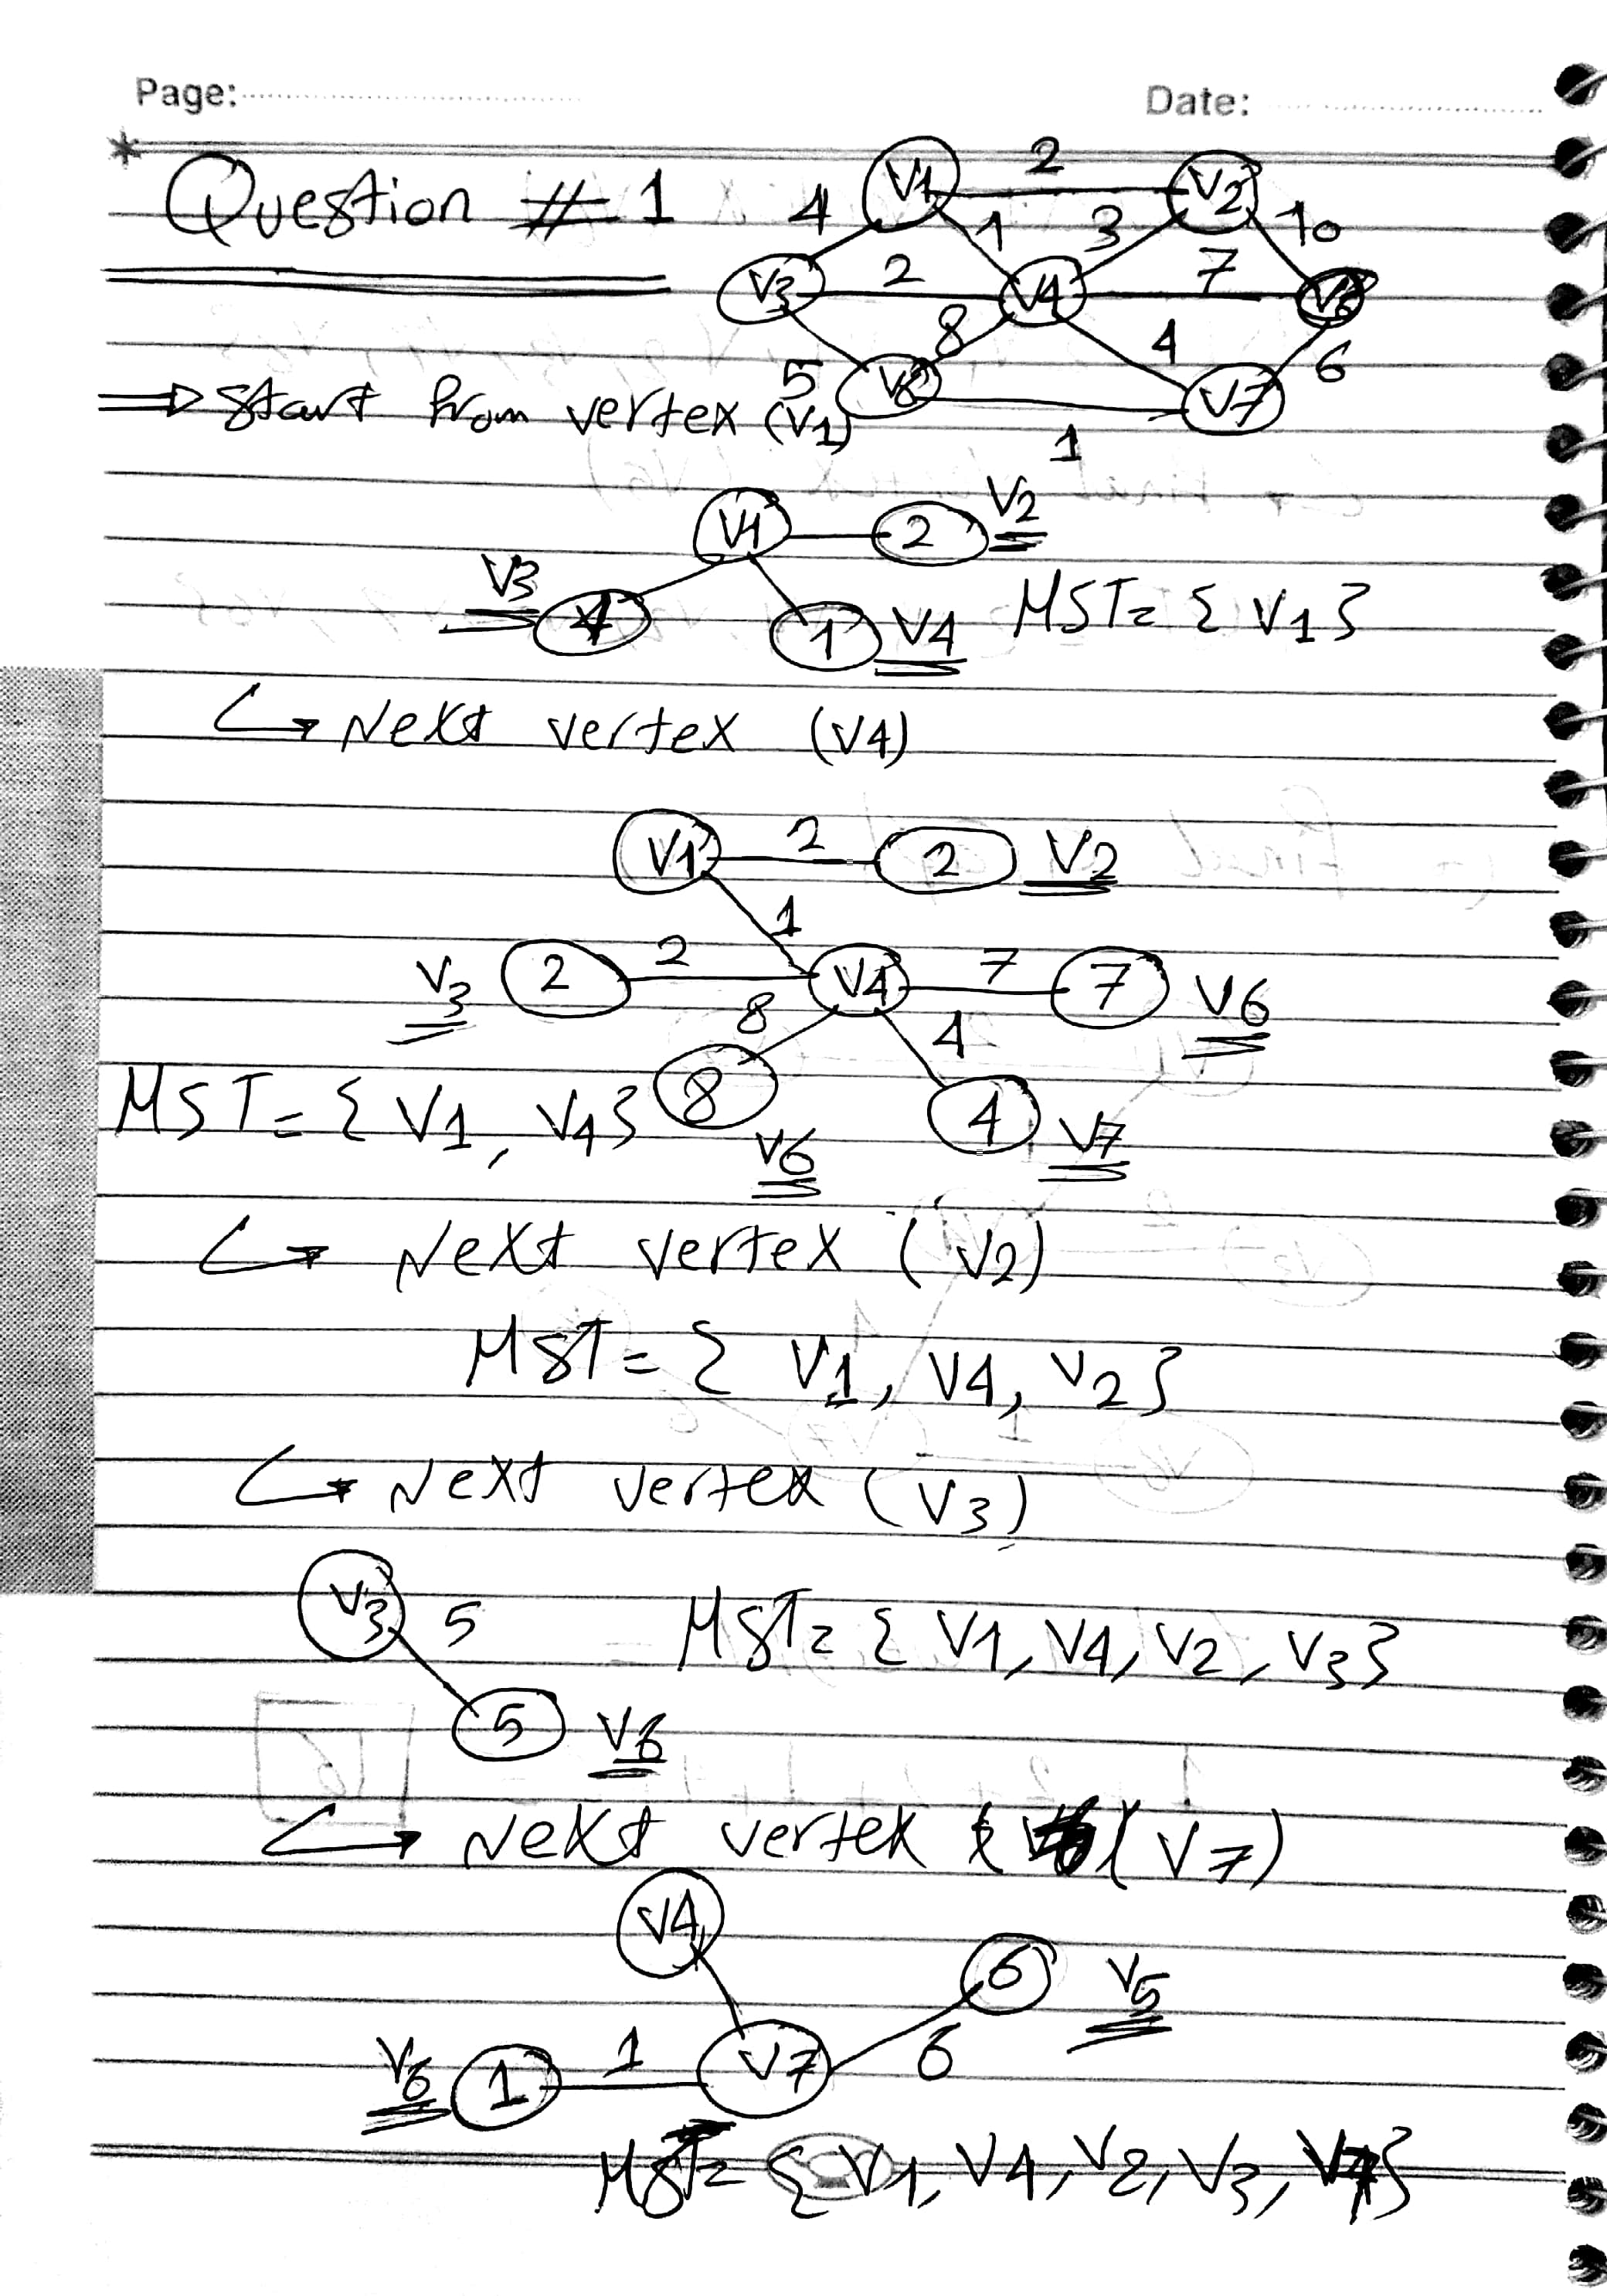 Page:
Date:
Question # 1
V1 2 V2
4 1 3 10
V3 2 V4 7
8 4 6
5 V7
1
Start from vertex (V1)
V1 2 V2
V3 4 1 V4 MST = { V1 }
Next vertex (V4)
V1 2 2 V2
1
V3 2 2 V4 7 7 V6
8 4
MST = { V1, V4 } 8 4 V7
V6
Next vertex (V2)
MST = { V1, V4, V2 }
Next vertex (V3)
V3 5 MST = { V1, V4, V2, V3 }
5 V6
Next vertex (V7)
V4 6 V5
V6 1 1 V7 6
MST = { V1, V4, V2, V3, V7 }